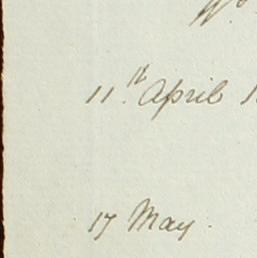 11th April
17 May